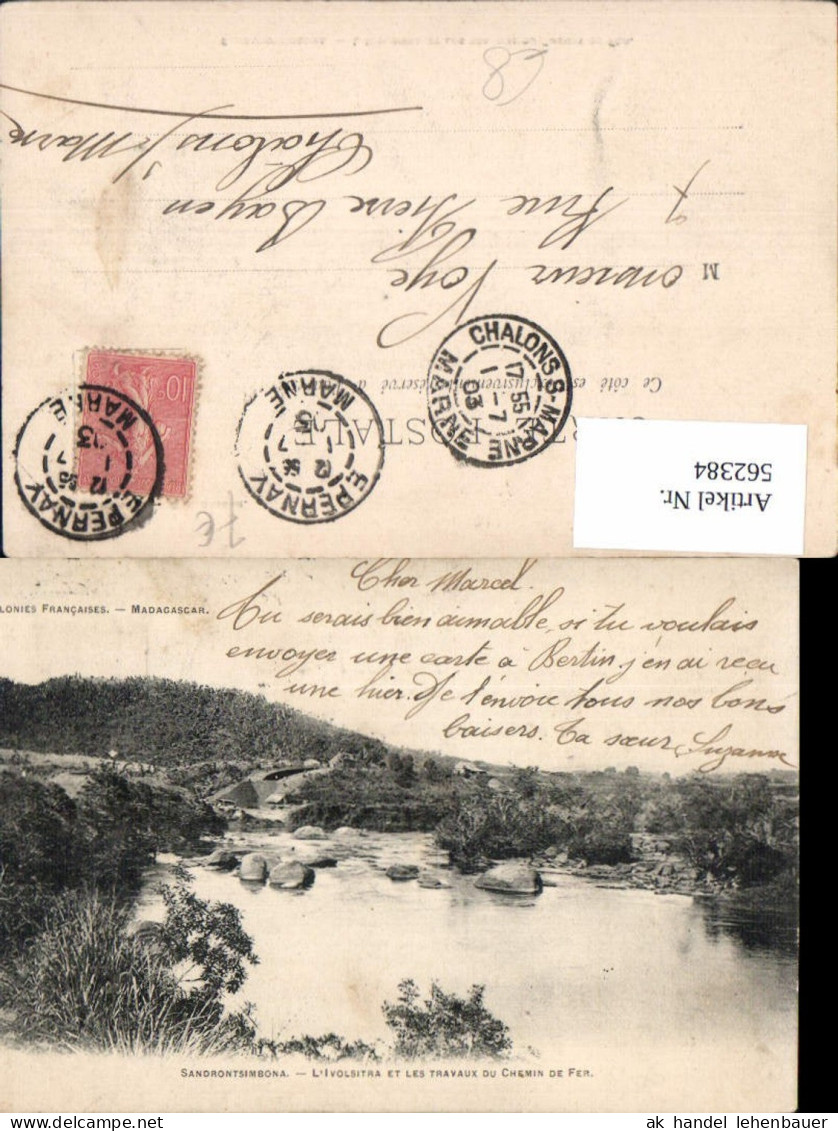 CARTE POSTALE
Ce côté est exclusivement réservé à
Monsieur Voye
7 Rue Pierre Bayen
Châlons s/ Marne
CHALONS-S-MARNE
17 55
1 - 7
03
MARNE
EPERNAY
12 35
1 - 7
03
MARNE
EPERNAY
12 35
1 - 7
03
MARNE
10c
7€
Artikel Nr.
562384
LONIES FRANÇAISES. — MADAGASCAR.
Cher Marcel.
Tu serais bien aimable, si tu voulais
envoyer une carte à Bertin, j'en ai reçu
une hier. Je t'envoie tous nos bons
baisers. Ta sœur, Suzanne
SANDRONTSIMBONA. — L'IVOLSITRA ET LES TRAVAUX DU CHEMIN DE FER.
ak handel lehenbauer